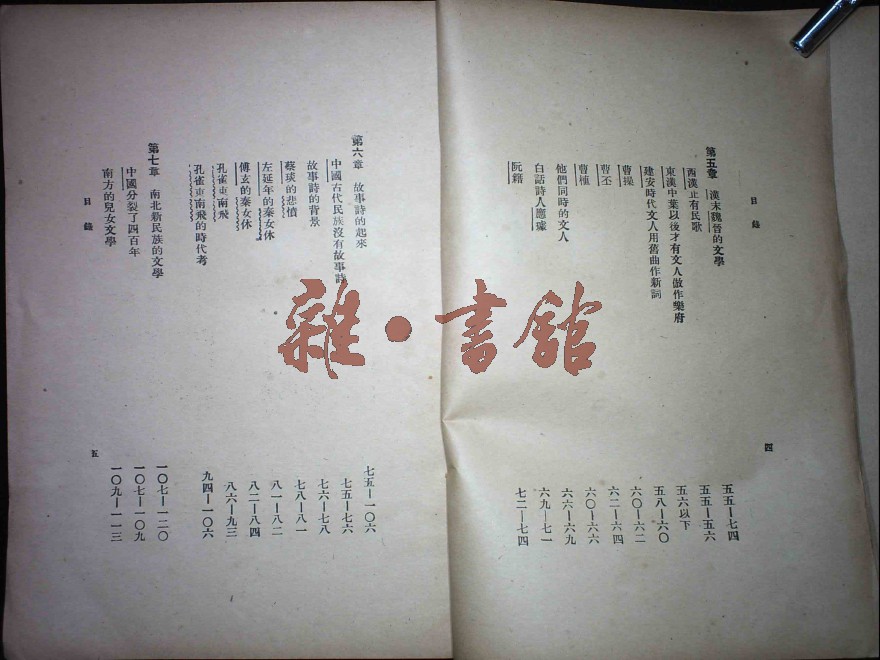 目錄
四
第五章 漢末魏晉的文學 五五—七四
西漢止有民歌 五五—五六
東漢中葉以後才有文人倣作樂府 五六以下
建安時代文人用舊曲作新詞 五八—六〇
曹操 六〇—六二
曹丕 六二—六四
曹植 六〇—六六
他們同時的文人 六六—六九
白話詩人應璩 六九—七一
阮籍 七二—七四
第六章 故事詩的起來 七五—一〇六
中國古代民族沒有故事詩 七五—七六
故事詩的背景 七六—七八
蔡琰的悲憤 七八—八一
左延年的秦女休 八一—八二
傅玄的秦女休 八二—八四
孔雀東南飛 八六—九三
孔雀東南飛的時代考 九四—一〇六
第七章 南北新民族的文學 一〇七—一二〇
中國分裂了四百年 一〇七—一〇九
南方的兒女文學 一〇九—一一三
目錄
五
雜·書館